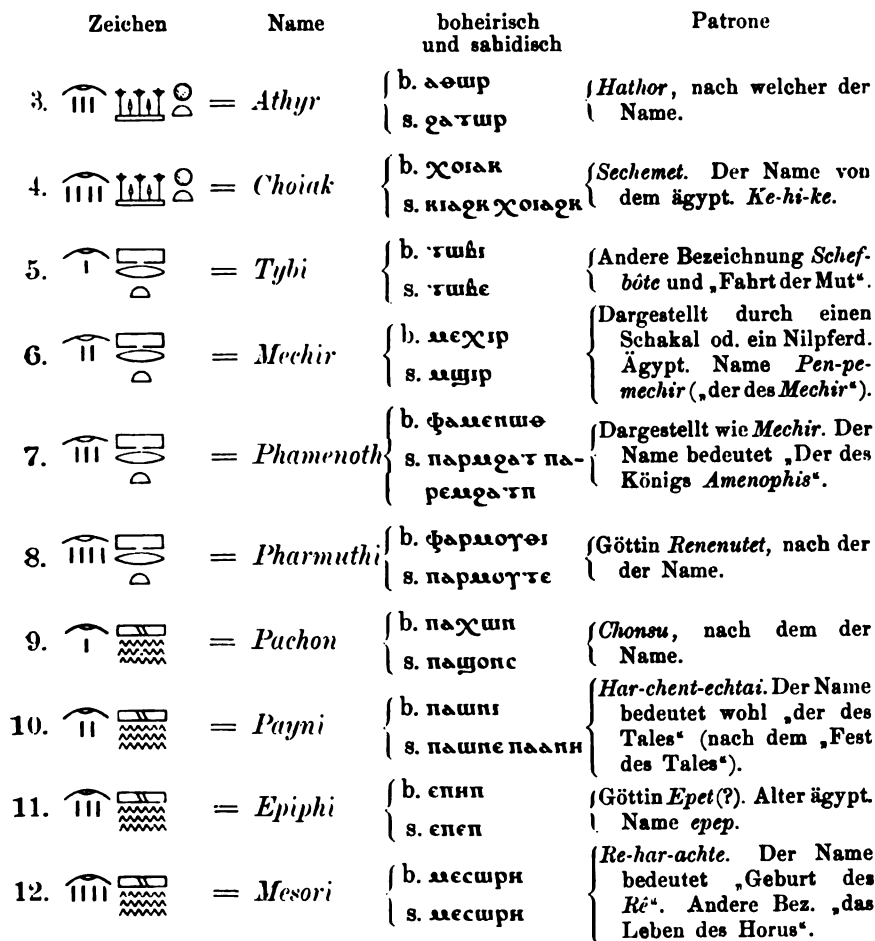 Zeichen Name boheirisch und sahidisch Patrone
3. = Athyr
b. ⲁⲑⲱⲣ
s. ϩⲁⲧⲱⲣ
Hathor, nach welcher der
Name.
4. = Choiak
b. ⲭⲟⲓⲁⲕ
s. ⲕⲓⲁϩⲕ ⲭⲟⲓⲁϩⲕ
Sechemet. Der Name von
dem ägypt. Ke-hi-ke.
5. = Tybi
b. ⲧⲱⲃⲓ
s. ⲧⲱⲃⲉ
Andere Bezeichnung Schef-
bôte und „Fahrt der Mut“.
6. = Mechir
b. ⲙⲉⲭⲓⲣ
s. ⲙϣⲓⲣ
Dargestellt durch einen
Schakal od. ein Nilpferd.
Ägypt. Name Pen-pe-
mechir („der des Mechir“).
7. = Phamenoth
b. ⲫⲁⲙⲉⲛⲱⲑ
s. ⲡⲁⲣⲙϩⲁⲧ ⲡⲁ-
ⲣⲉⲙϩⲁⲧⲡ
Dargestellt wie Mechir. Der
Name bedeutet „Der des
Königs Amenophis“.
8. = Pharmuthi
b. ⲫⲁⲣⲙⲟⲩⲑⲓ
s. ⲡⲁⲣⲙⲟⲩⲧⲉ
Göttin Renenutet, nach der
der Name.
9. = Pachon
b. ⲡⲁⲭⲱⲛ
s. ⲡⲁϣⲟⲛⲥ
Chonsu, nach dem der
Name.
10. = Payni
b. ⲡⲁⲱⲛⲓ
s. ⲡⲁⲱⲛⲉ ⲡⲁⲁⲡⲏ
Har-chent-echtai. Der Name
bedeutet wohl „der des
Tales“ (nach dem „Fest
des Tales“).
11. = Epiphi
b. ⲉⲡⲏⲡ
s. ⲉⲡⲉⲡ
Göttin Epet(?). Alter ägypt.
Name epep.
12. = Mesori
b. ⲙⲉⲥⲱⲣⲏ
s. ⲙⲉⲥⲱⲣⲏ
Re-har-achte. Der Name
bedeutet „Geburt des
Rê“. Andere Bez. „das
Leben des Horus“.